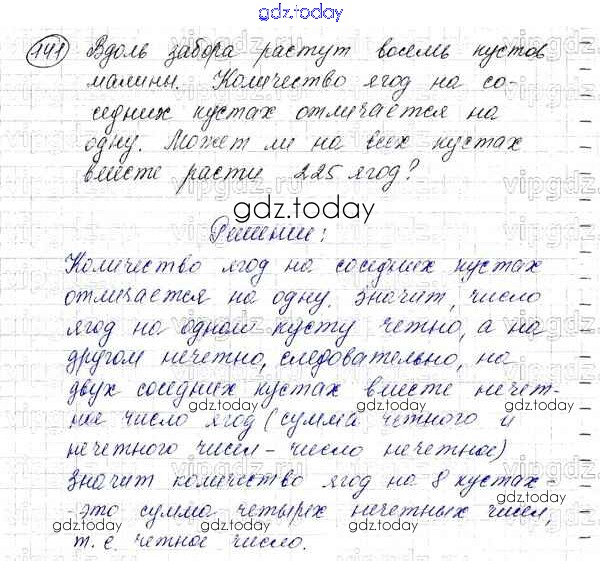 gdz.today
141 Вдоль забора растут восемь кустов
малины. Количество ягод на со-
седних кустах отличается на
одну. Может ли на всех кустах
вместе расти 225 ягод?
gdz.today
Решение:
Количество ягод на соседних кустах
отличается на одну. Значит, число
ягод на одном кусту четно, а на
другом нечетно, следовательно, на
двух соседних кустах вместе нечет-
ное число ягод (сумма четного и
нечетного чисел - число нечетное)
Значит количество ягод на 8 кустах -
- это сумма четырех нечетных чисел,
т. е. четное число.